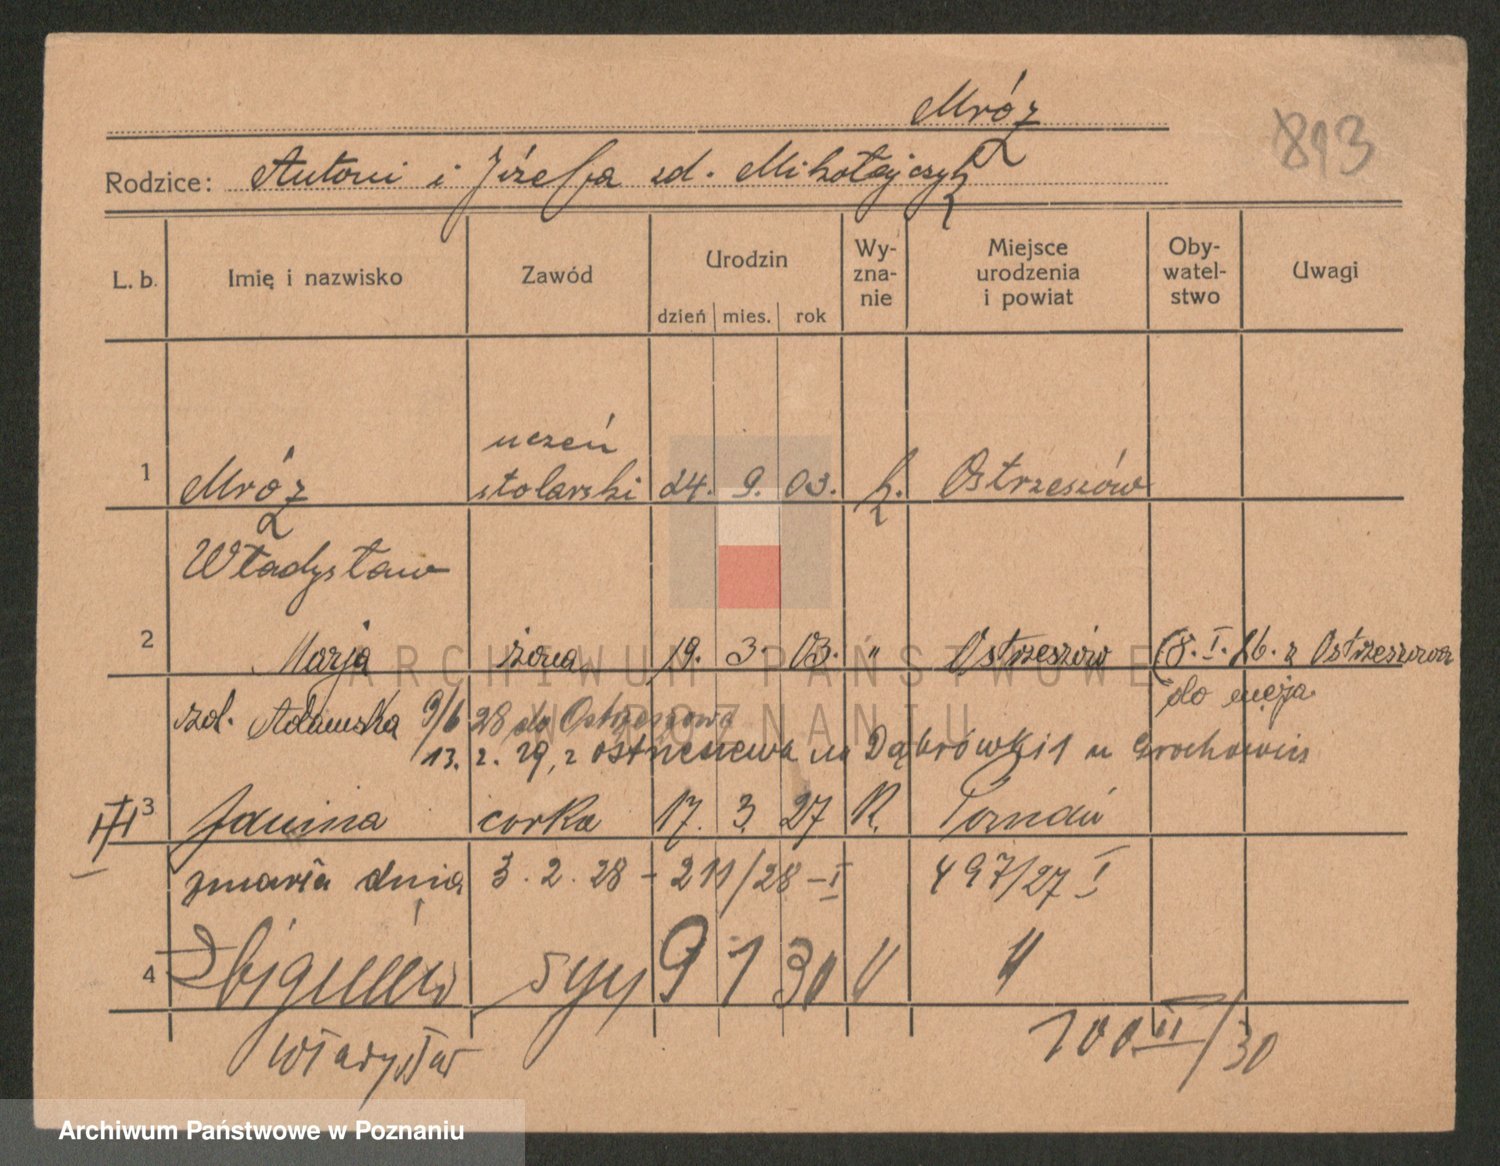 Mróz
813
Rodzice: Antoni i Józefa zd. Mikołajczyk
L. b.
Imię i nazwisko
Zawód
Urodzin
dzień mies. rok
Wy-
zna-
nie
Miejsce
urodzenia
i powiat
Oby-
watel-
stwo
Uwagi
uczeń
1 Mróz stolarski 24. 9. 03. k. Ostrzeszów
Władysław
2 Marja żona 19. 3. 03. " Ostrzeszów (8. I. 26. z Ostrzeszowa
do męża.
zd. Adamska 9/6 28 do Ostrzeszowa
13. 2. 29, z Ostrzeszowa na Dąbrówki 1 u
III 3 Janina corka 17. 3. 27 R. Poznań
zmarła dnia 3. 2. 28 - 211/28 - I 497/27 I
4 Zbigniew syn 9 1 30 " "
Władysław
100 II/30
ARCHIWUM PAŃSTWOWE
W POZNANIU
Archiwum Państwowe w Poznaniu